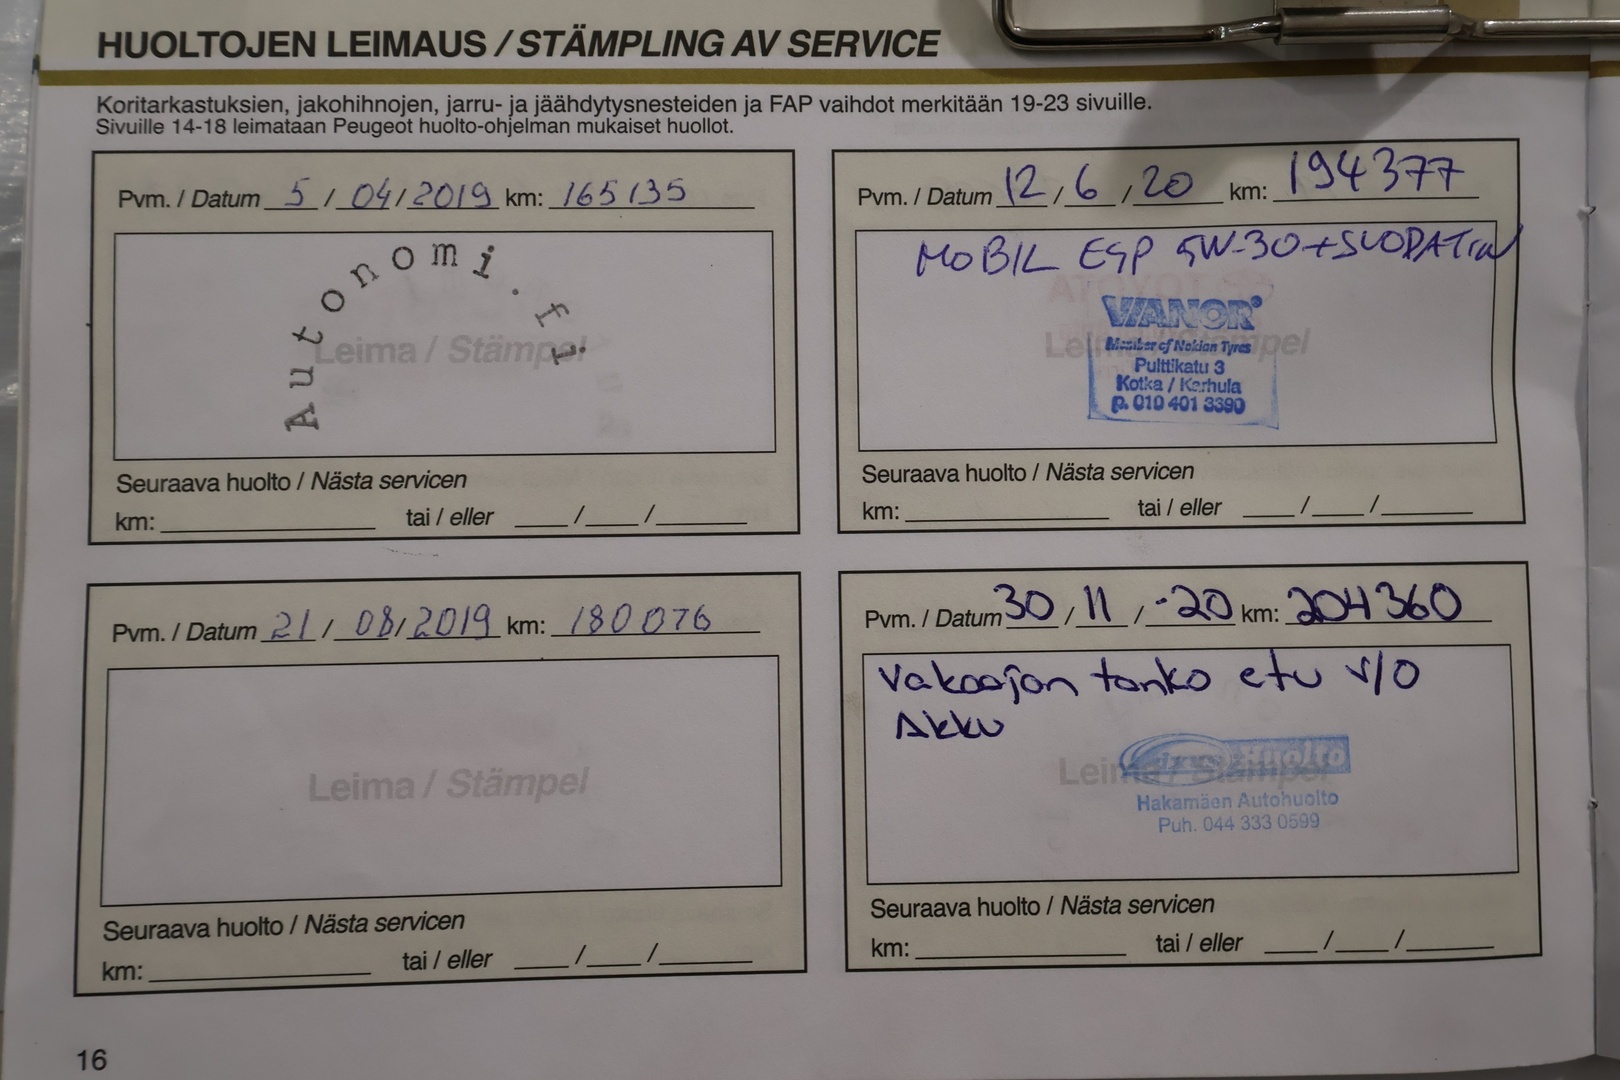 HUOLTOJEN LEIMAUS / STÄMPLING AV SERVICE
Koritarkastuksien, jakohihnojen, jarru- ja jäähdytysnesteiden ja FAP vaihdot merkitään 19-23 sivuille.
Sivuille 14-18 leimataan Peugeot huolto-ohjelman mukaiset huollot.
Pvm. / Datum 5 / 04 / 2019 km: 165135
Autonomi.fi
Leima / Stämpel
Seuraava huolto / Nästa servicen
km: tai / eller / /
Pvm. / Datum 12 / 6 / 20 km: 194377
MOBIL ESP 5W-30 + SUODATIN
VIANOR
Member of Nokian Tyres
Leima / Stämpel
Pulttikatu 3
Kotka / Karhula
p. 010 401 3390
Seuraava huolto / Nästa servicen
km: tai / eller / /
Pvm. / Datum 21 / 08 / 2019 km: 180076
Leima / Stämpel
Seuraava huolto / Nästa servicen
km: tai / eller / /
Pvm. / Datum 30 / 11 / -20 km: 204360
Vakaajan tanko etu v/o
Akku
Huolto
Leima / Stämpel
Hakamäen Autohuolto
Puh. 044 333 0599
Seuraava huolto / Nästa servicen
km: tai / eller / /
16